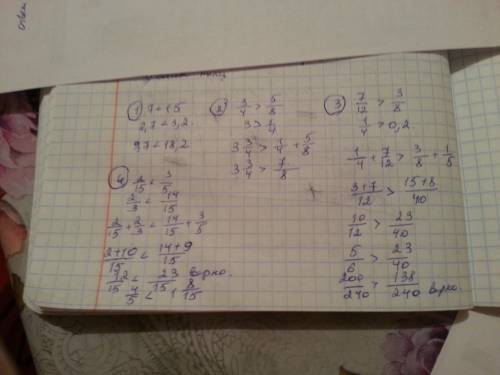 ① 7 < 15
2,7 < 3,2.
9,7 < 18,2
② 3/4 > 5/8
3 > 1/4
3 3/4 > 1/4 + 5/8
3 3/4 > 7/8
③ 7/12 > 3/8
1/4 > 0,2
1/4 + 7/12 > 3/8 + 1/5
3+7/12 > 15+8/40
10/12 > 23/40
5/6 > 23/40
200/240 > 138/240 верно.
④ 2/15 < 3/5
2/3 < 14/15
2/15 + 2/3 < 14/15 + 3/5
2+10/15 < 14+9/15
12/15 < 23/15 верно.
4/5 < 1 8/15